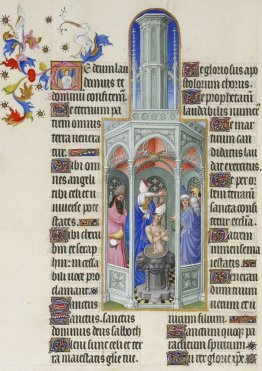 Te deum lau
damus te
dominum confitemur.
Te eternum pa
trem omnis
terra venera
tur.
Tibi om
nes angeli
tibi celi et u
niverse pote
states.
Tibi cheru
bim et seraph
im: incessa
bili voce pro
clamant.
Sanctus
Sanctus. sanctus
dominus deus sabaoth
Pleni sunt celi et ter
ra maiestatis glorie tue.
Te gloriosus apo
stolorum chorus.
Te prophetarum
laudabilis numerus.
Te mar
tirum can
didatus lau
dat exercitus.
Te per or
bem terrarum
sancta confi
tetur ecclesia.
Patrem
immense ma
iestatis.
Veneran dum
tuum verum et
unicum filium.
Sanctum quoq; pa
raclitum spiritum.
Tu rex glorie xpe.